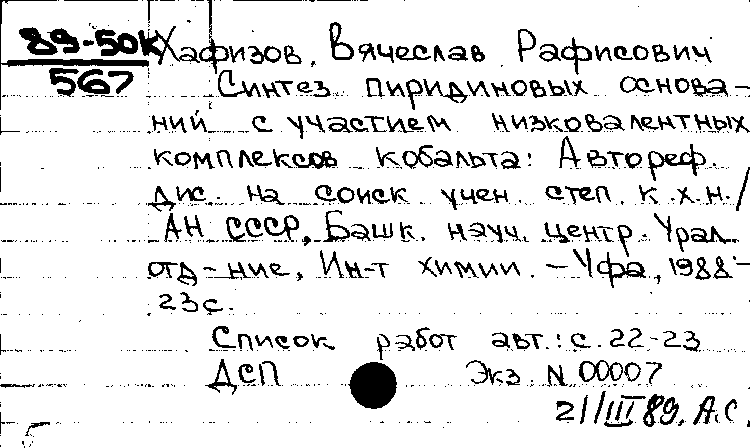 89-50К
567
Хафизов, Вячеслав Рафисович
Синтез пиридиновых основа-
ний с участием низковалентных
комплексов кобальта: Автореф.
дис. на соиск учен. степ. к.х.н./
АН СССР, Башк. науч. центр. Урал.
отд-ние, Ин-т химии. – Уфа, 1988 –
23с.
Список работ авт.: с. 22-23
ДСП Экз. N 00007
21/III 89. А.С.